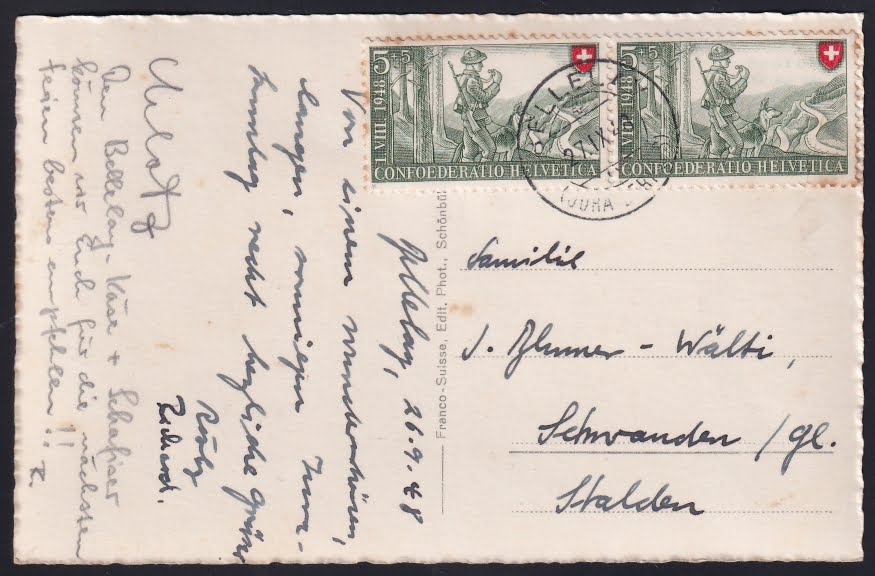 5+5
1. VIII 1948
CONFOEDERATIO HELVETICA
5+5
1. VIII 1948
CONFOEDERATIO HELVETICA
BELLELAY
27.IX.48
(JURA BERNOIS)
Bellelay, 26.9.48
Von einem wunderschönen,
langen, sonnigen Jura-
Sonntag recht herzliche Grüsse
Richard.
Den Bellelay-Käse + Schafiser
können wir Euch für die nächsten
Ferien bestens empfehlen!!
R.
Franco-Suisse, Edit. Phot., Schönbü
Familie
J. Blumer-Wälti,
Schwanden/Gl.
Stalden